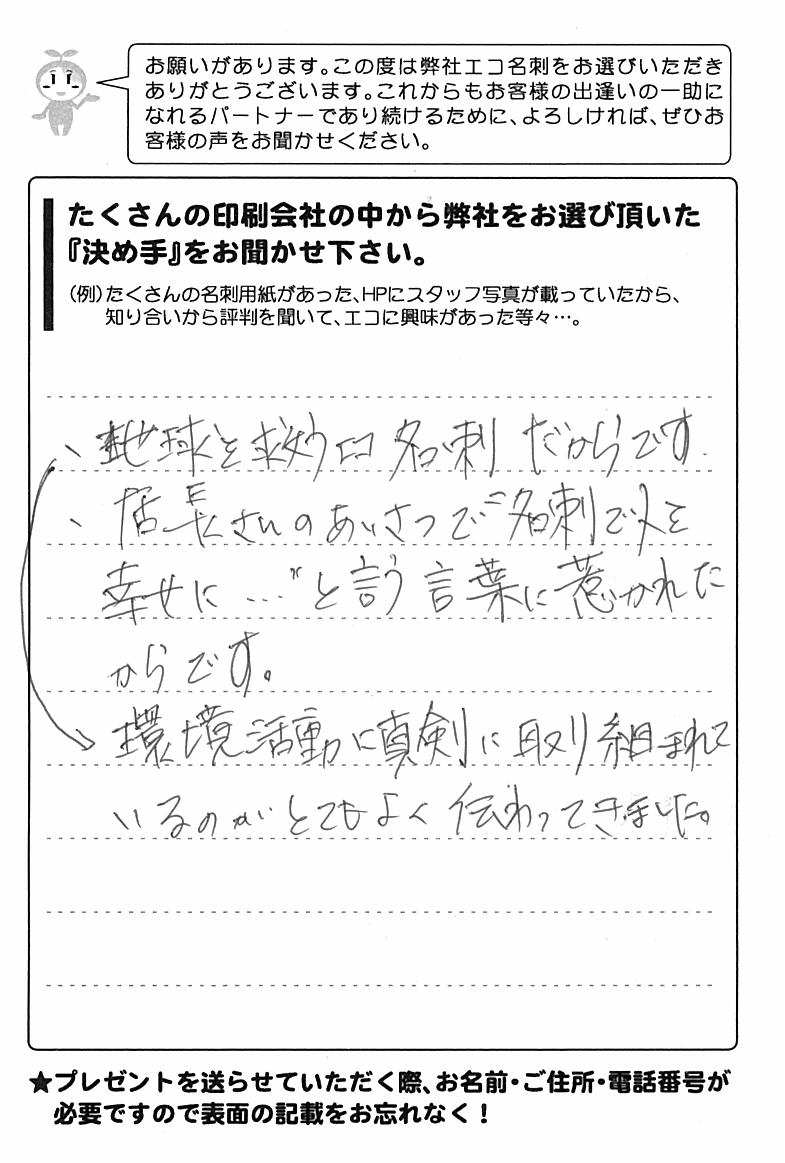 お願いがあります。この度は弊社エコ名刺をお選びいただき
ありがとうございます。これからもお客様の出逢いの一助に
なれるパートナーであり続けるために、よろしければ、ぜひお
客様の声をお聞かせください。
たくさんの印刷会社の中から弊社をお選び頂いた
『決め手』をお聞かせ下さい。
（例）たくさんの名刺用紙があった、HPにスタッフ写真が載っていたから、
知り合いから評判を聞いて、エコに興味があった等々…。
、地球を救うエコ名刺だからです.
、店長さんのあいさつで“名刺で人を
幸せに…”と言う言葉に惹かれた
からです。
環境活動に真剣に取り組まれて
いるのがとてもよく伝わってきました。
★プレゼントを送らせていただく際、お名前・ご住所・電話番号が
必要ですので表面の記載をお忘れなく！